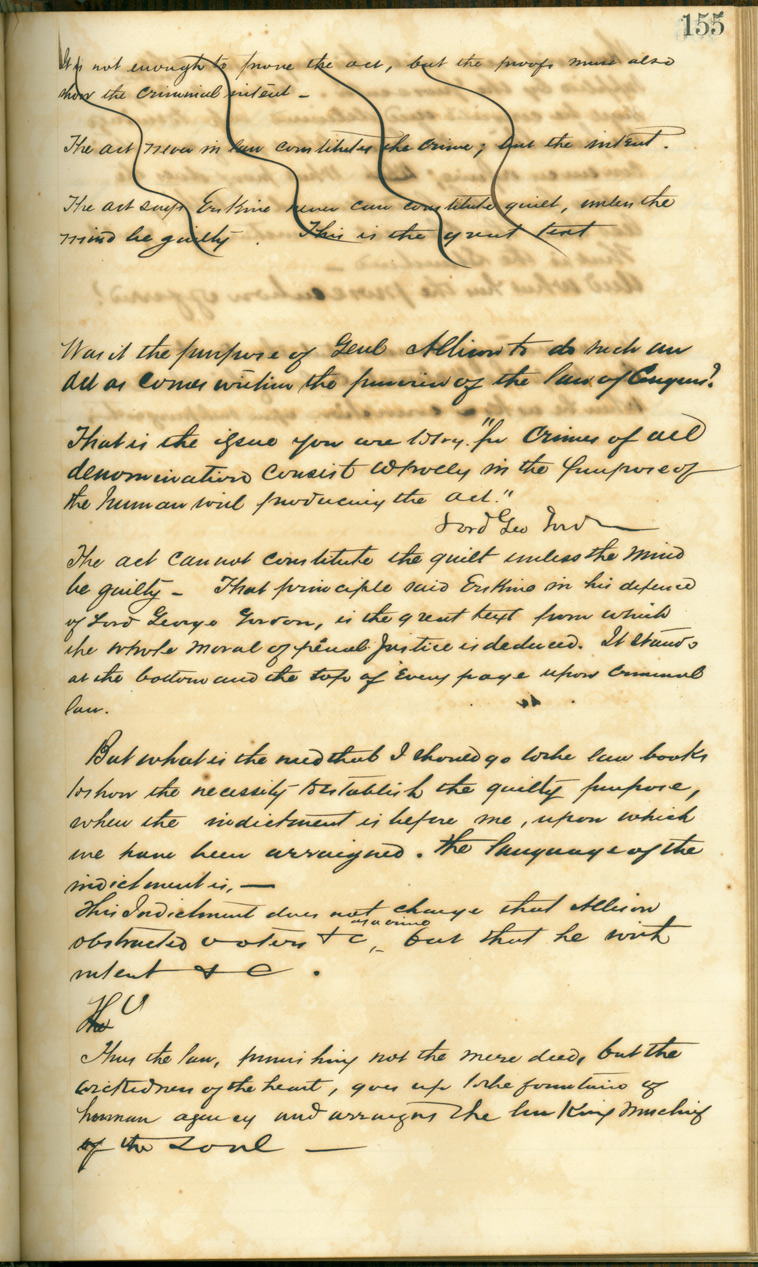 155
It is not enough to prove the act, but the proofs must also
show the criminal intent -
The act never in law constitutes the crime; but the intent.
The act says Erskine never can constitute guilt, unless the
mind be guilty. This is the great text
Was it the purpose of Genl Allison to do such an
act as comes within the purview of the law of Congress?
That is the issue you are to try. "for crimes of all
denomination consist wholly in the purpose of
the human will producing the act."
Lord Geo Gord
The act cannot constitute the guilt unless the mind
be guilty - That principle said Erskine in his defence
of Lord George Gordon, is the great text from which
the whole moral of penal Justice is deduced. It stands
at the bottom and the top of every page upon criminal
law.
But what is the need that I should go to the law books
to show the necessity to establish the guilty purpose,
when the indictment is before me, upon which
we have been arraigned. the language of the
indictment is, —
This Indictment does not charge that Allison
as a crime
obstructed voters & c, - but that he with
intent & C.
Thus the law, punishing not the mere deed, but the
wickedness of the heart, goes up to the fountains of
human agency and arraigns the lurking mischief
of the soul —